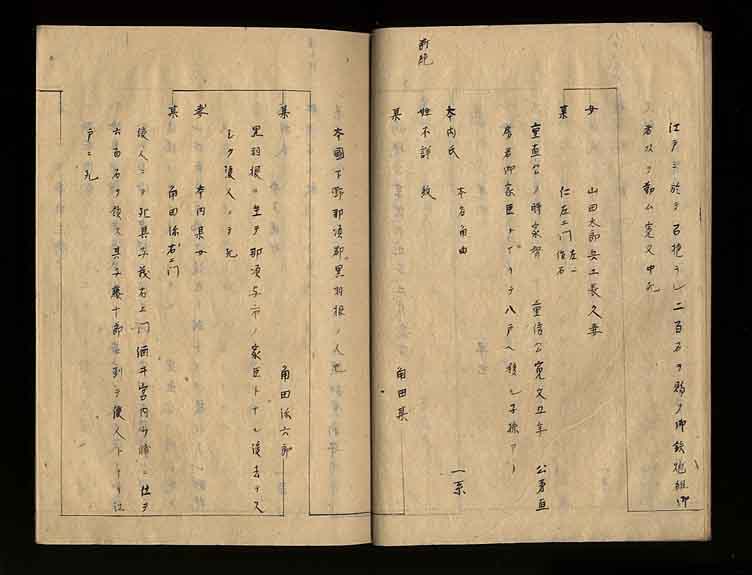 江戸ニ於テ召抱ラレ二百石ヲ賜ヲ御鉄炮組御
君以ヲ勤ム寛文中死
女 山田太郎安工長久妻
某 仁左ヱ門
重直公ノ時家督 重信公寛文五年 公弟直
房君御家臣トナリテ八戸ヘ移ル子孫アリ
本内氏 本名角田 一系
姓不詳 紋
某 角田某
本國下野那須郡黒羽根ノ人也
某 角田 六郎
黒羽根ニ生テ那須与市ノ家臣トナル後去テ又
シク浪人ノテ死
妻 本内某女
某 角田 右ヱ門
浪人ニテ死其子 右ヱ門酒井宮内少輔ニ仕テ
六百石ヲ領ス其子藤十郎 到テ浪人トナリ江
戸ニ死